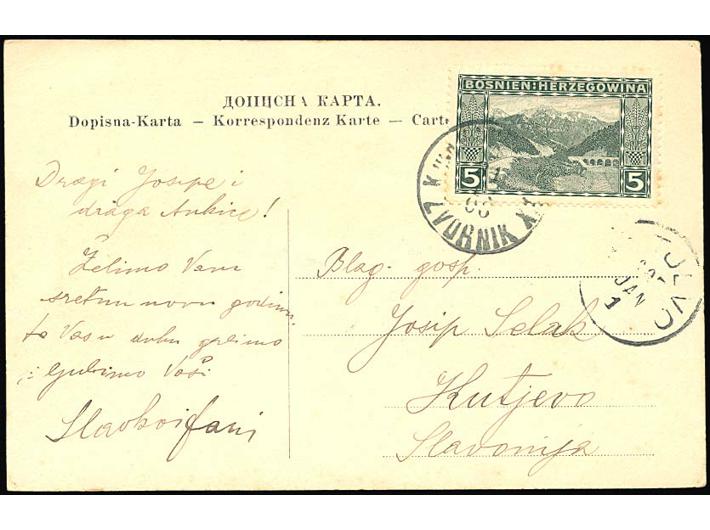 ДОПИСНА КАРТА.
Dopisna-Karta — Korrespondenz Karte — Cart
BOSNIEN-HERZEGOWINA
5 5
ZVORNIK
JAN
1
Dragi Josipe i
draga Ankice!
Želimo Vam
sretnu novu godinu,
to Vas u duhu grlimo
i ljubimo Vaši
Slavko i Fani
Blag. gosp.
Josip Selak
Kutjevo
Slavonija